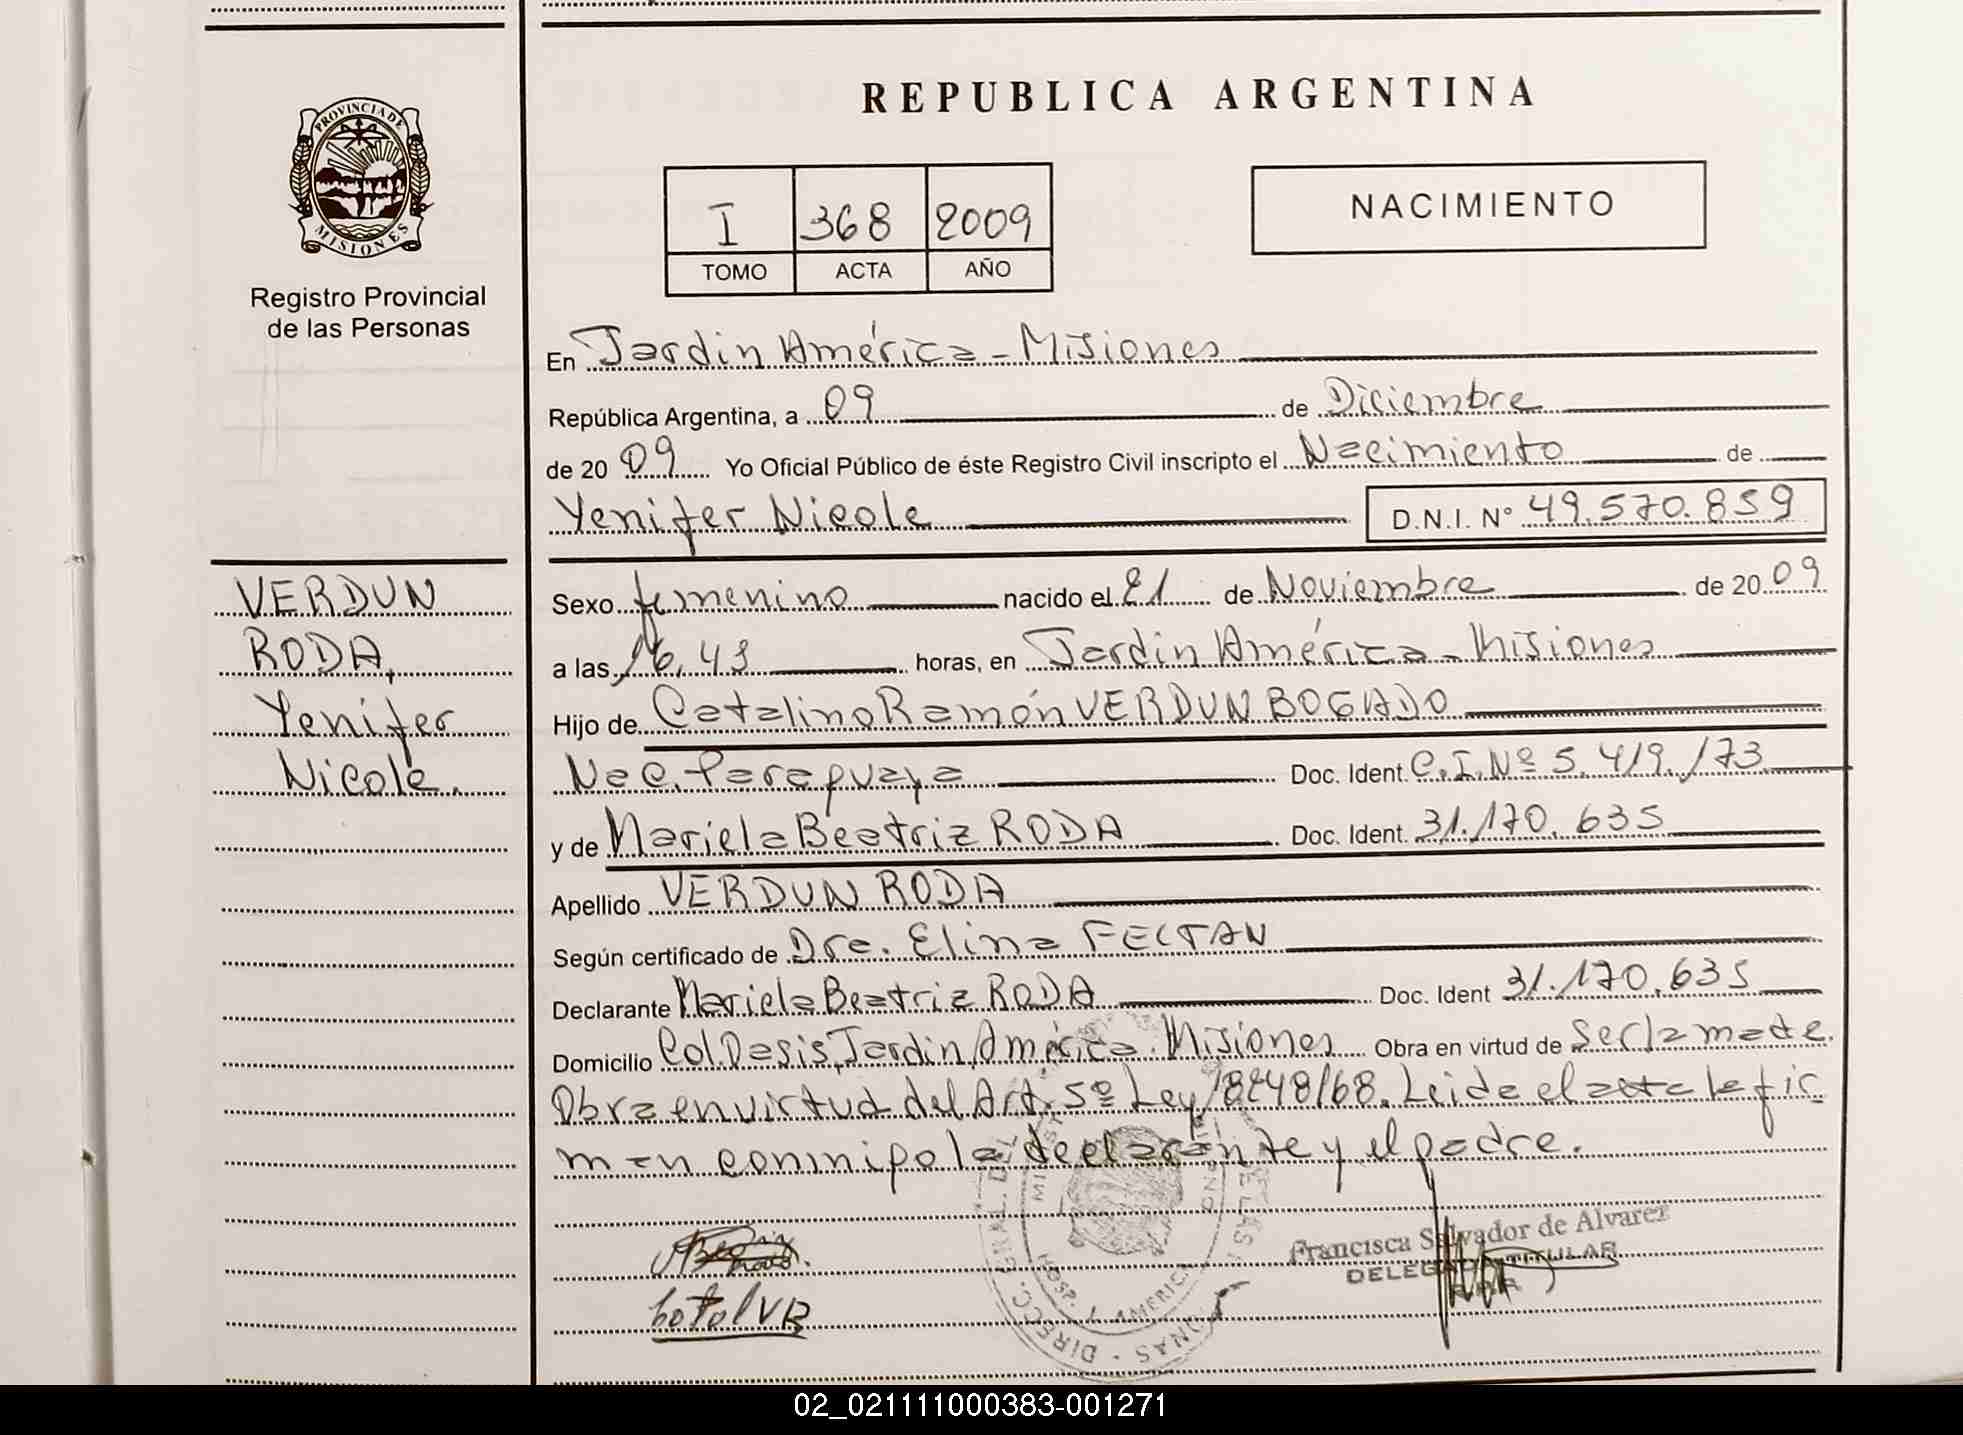 REPUBLICA ARGENTINA
PROVINCIA DE
MISIONES
Registro Provincial
de las Personas
I 368 2009
TOMO ACTA AÑO
NACIMIENTO
En Jardin América - Misiones
República Argentina, a 09 de Diciembre
de 20 09 Yo Oficial Público de éste Registro Civil inscripto el Nacimiento de
Yenifer Nicole D.N.I. N° 49.570.859
VERDUN
RODA,
Yenifer
Nicole.
Sexo femenino nacido el 21 de Noviembre de 20 09
a las 16,43 horas, en Jardin América - Misiones
Hijo de Catalino Ramón VERDUN BOGADO
Nac. Paraguaya Doc. Ident. C.I. Nº 5.419.173
y de Mariela Beatriz RODA Doc. Ident. 31.170.635
Apellido VERDUN RODA
Según certificado de Dra. Elina
Declarante Mariela Beatriz RODA Doc. Ident 31.170.635
Domicilio Col. Oasis, Jardin América. Misiones Obra en virtud de Se clama de.
Obra en virtud del Art. 5º Ley 18248/68. Leida el acta la fir
man conmigo la declarante y el padre.
Francisca Salvador de Alvarez
DELEGADA TITULAR
02_021111000383-001271